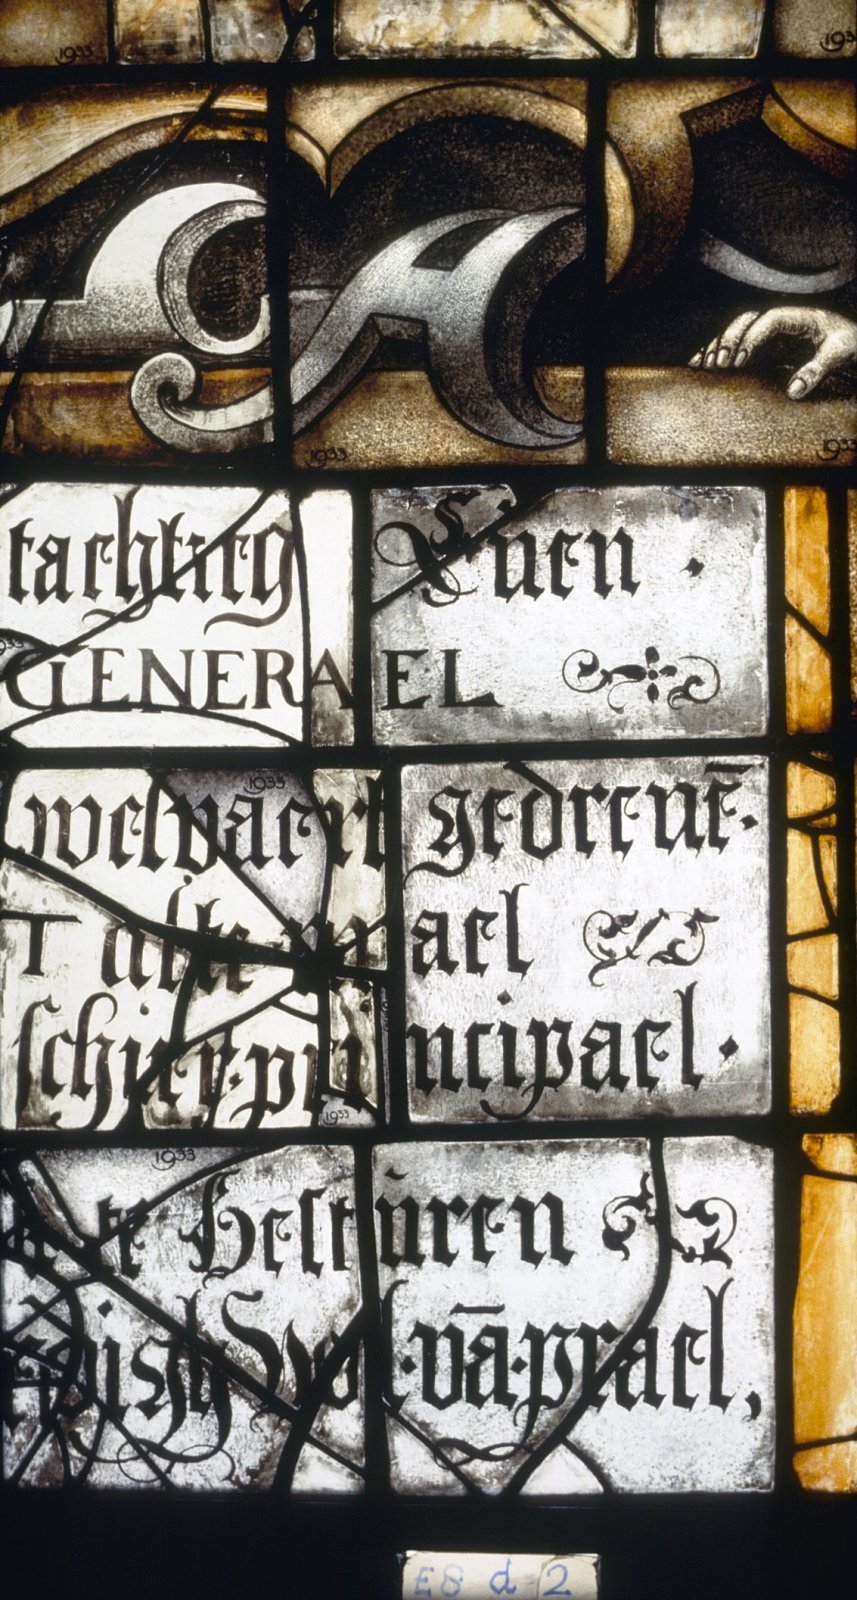 1933
1933
1933
1933
tachtich Euen ·
GENERAEL
1933
welvaert gedreuē·
T alte mael
schier · principael ·
1933
1933
te Hestüren
digh Vol · vā · prael,
E8 d 2